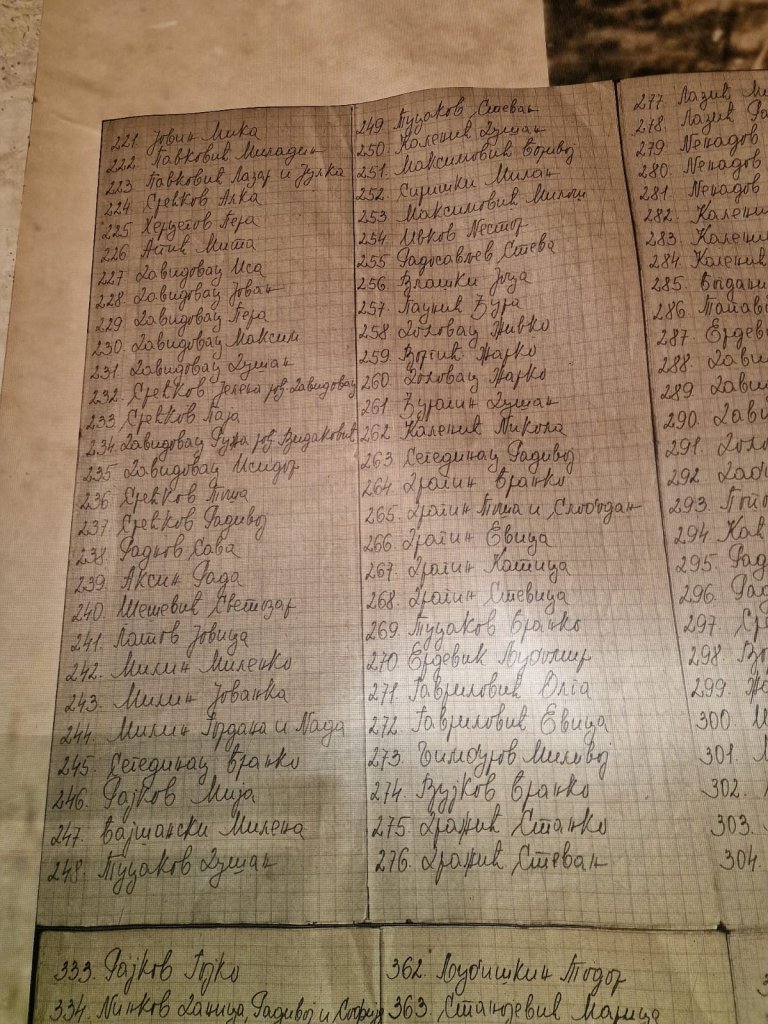 221. Јовин Мика
222. Павковић Миладин
223 Павковић Лазар и Јулка
224 Срећков Алка
225 Херцегов Пера
226 Апић Мита
227 Давидовац Иса
228. Давидовац Јован
229 Давидовац Пера
230. Давидовац Максим
231 Давидовац Душан
232. Срећков Јелена рођ. Давидовац
233. Срећков Паја
234. Давидовац Ружа рођ. Видаковић
235 Давидовац Исидор
236 Срећков Тоша
237. Срећков Радивој
238. Раднов Сава
239. Аксин Рада
240. Шешевић Светозар
241. Латов Јовица
242. Милин Миленко
243. Милин Јованка
244. Милин Гордана и Нада
245. Сегединац Бранко
246. Рајков Мија
247. Бајшански Милена
248. Туцаков Душан
249. Туцаков Стеван
250. Каленић Душан
251. Максимовић Боривој
252. Сиришки Милан
253 Максимовић Милош
254 Ивков Нестор
255 Радосављев Стева
256 Влашки Јоца
257. Паунић Ђура
258 Доловац Живко
259. Воргић Жарко
260. Доловац Жарко
261 Ђурагин Душан
262. Каленић Никола
263. Сегединац Радивој
264. Драгин Бранко
265. Драгин Тоша и Слободан
266. Драгин Евица
267. Драгин Катица
268. Драгин Стевица
269. Туцаков Бранко
270 Ердевић Љубомир
271. Гавриловић Олга
272. Гавриловић Евица
273. Чимбуров Миливој
274. Вујков Бранко
275. Дражић Станко
276. Дражић Стеван
277 Лазић
278. Лазић
279 Ненадов
280. Ненадов
281. Ненадов
282.
283.
284. Каленић
285.
286.
287.
288.
289.
290.
291.
292
293.
294.
295.
296.
297.
298.
299.
300.
301.
302.
303.
304.
333. Рајков Гојко
334. Нинков Даница, Радивој и Софија
362. Љубишкин Тодор
363. Станојевић Марица